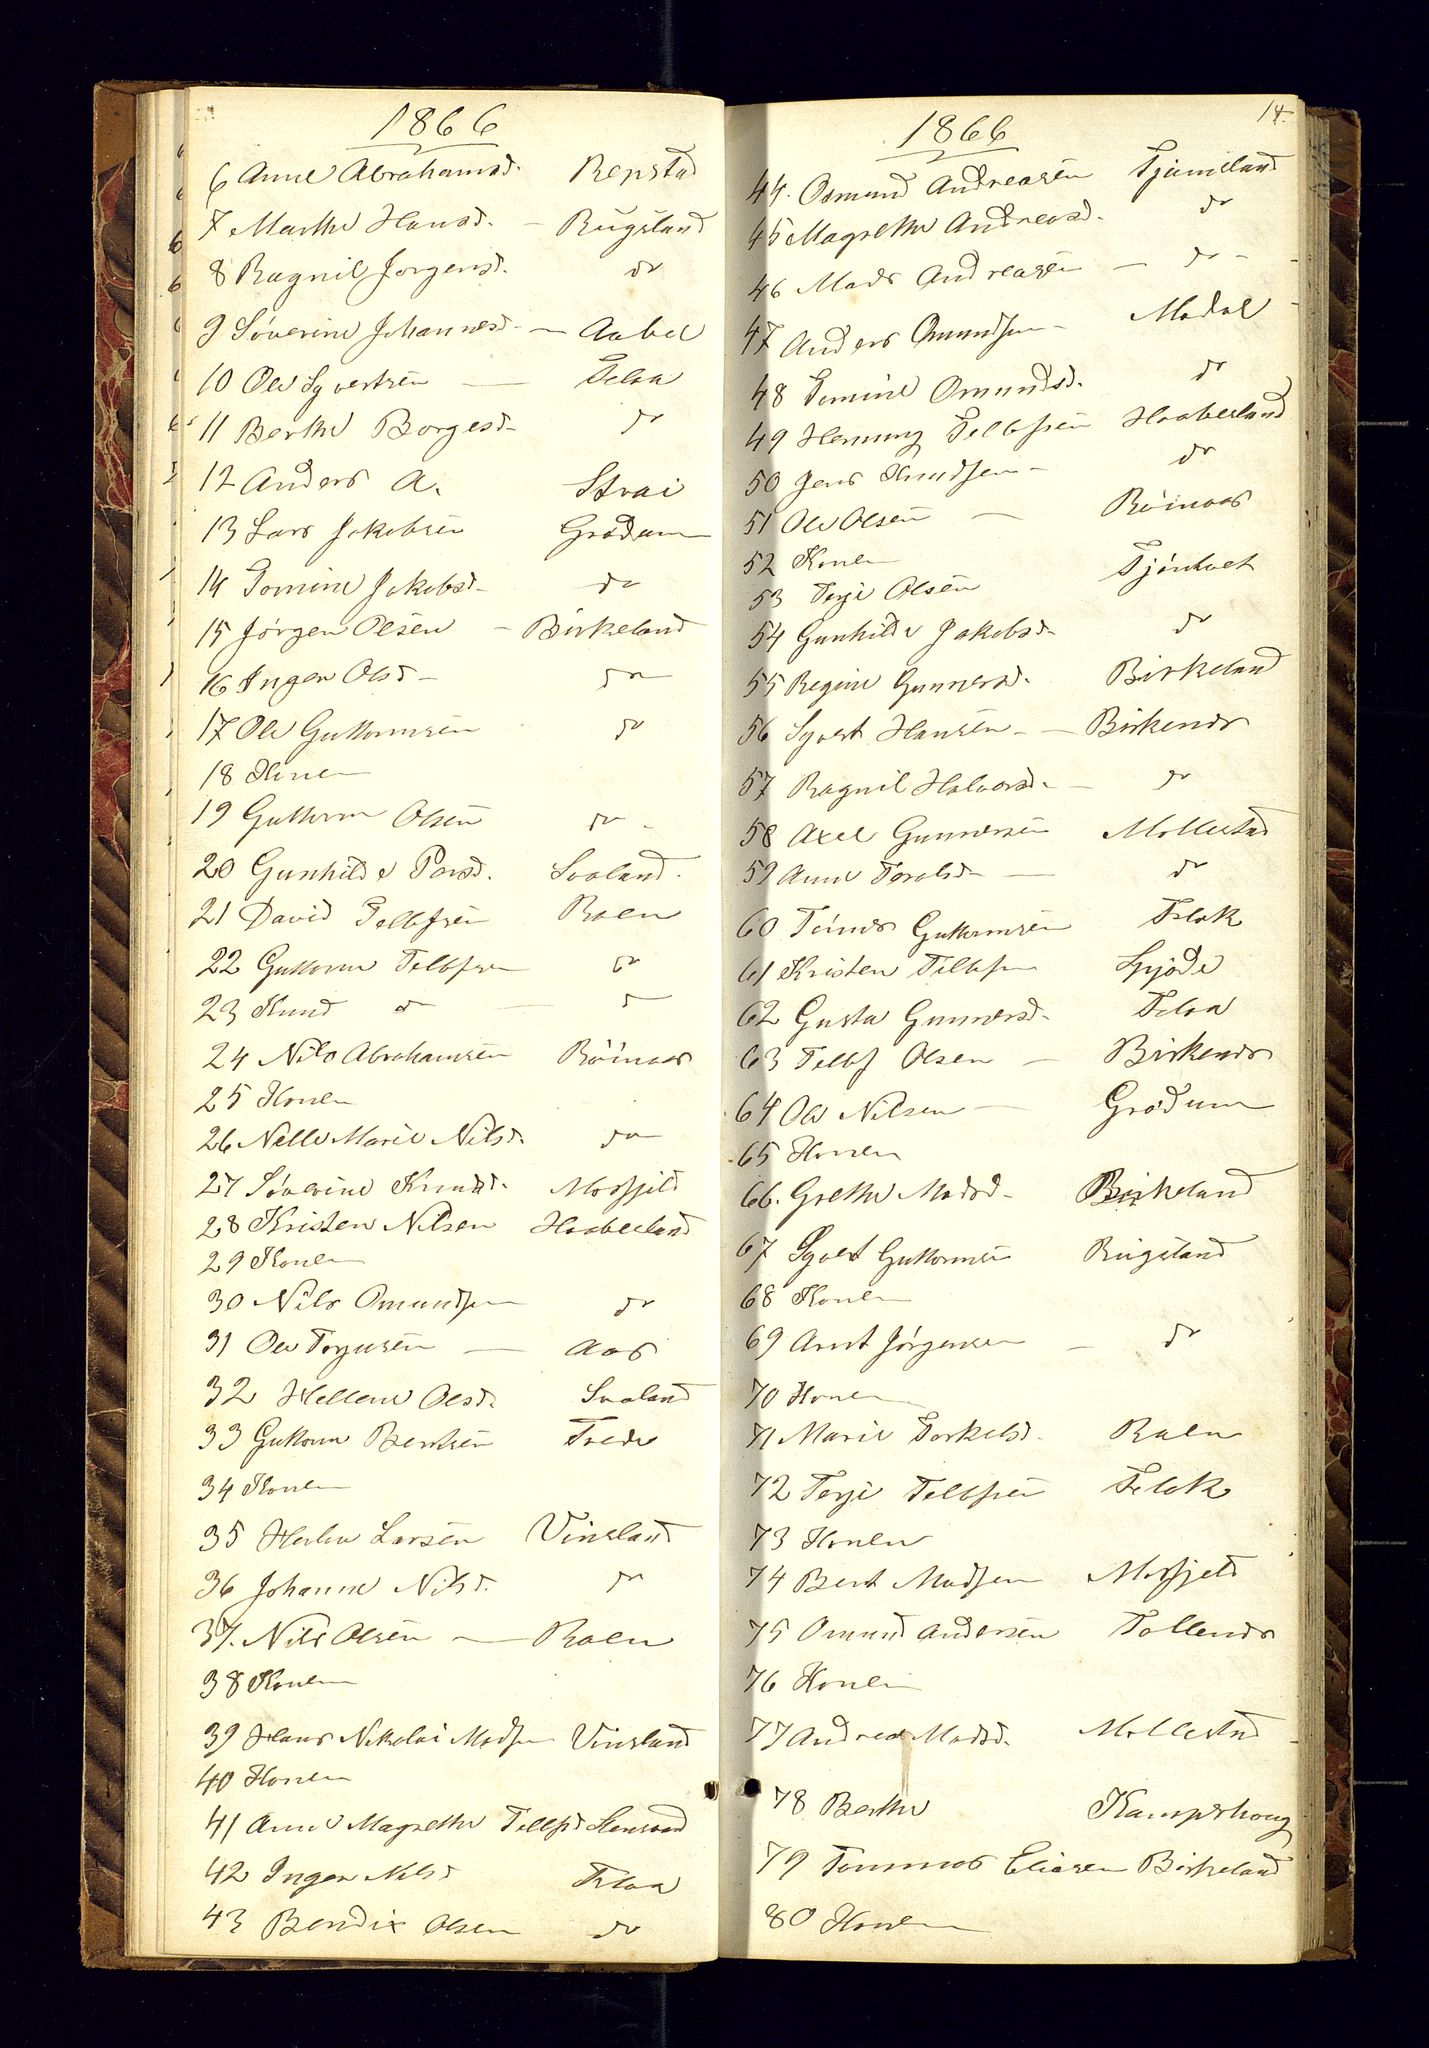 1866
6 Anne Abrahamsd. Repstad
7 Marthe Hansd. — Rugsland
8 Ragnil Jorgensd. do
9 Søverine Johannesd. — Aabel
10 Ole Syvertsen — Teloa
11 Berthe Borgesd. do
12 Anders A. Strai
13 Lars Jakobsen Grødum
14 Tomine Jakobsd. do
15 Jørgen Olsen — Birkeland
16 Inger Olsd — do
17 Ole Guttormsen do
18 Konen
19 Guttorm Olsen do
20 Gunhilde Persd. Svaland.
21 David Tellefsen Roen
22 Guttorm Tellefsen do
23 Knud do — do
24 Nils Abrahamsen Röinaas
25 Konen
26 Nelle Marie Nilsd. do
27 Søverine Knudsd. Mosfjeld
28 Kristen Nilsen Haabesland
29 Konen
30 Nils Omundsen do
31 Ole Torjusen — Aas
32 Hellene Olsd. Svaland
33 Guttorm Bentsen Trede
34 Konen
35 Larsen Vinsland
36 Johanne Nilsd. do
37. Nils Olsen — Roen
38 Konen
39 Hans Nikolai Madsen Vinsland
40 Konen
41 Anne Magrethe Tellefsd
42 Inger Nilsd Teloa
43 Bendix Olsen do
14.
1866
44. Osmund Andreasen Tjameland
45 Magrethe Andreasd. do
46 Mads Andreasen — do -
47 Anders Omundsen - Modal
48 Tomine Omundsd. do
49 Henning Tellefsen Haabesland
50 Jens Knudsen - do
51 Ole Olsen — Röinaas
52 Konen
53 Terje Olsen Tjönhoet
54 Gunhilde Jakobsd. do
55 Regine Gunnersd. Birkeland
56 Syvert Hansen - — Birkenes
57 Ragnil Halvorsd. — do
58 Axel Gunnersen Mollestad
59 Anne Toralsd — do
60 Tönnes Guttormsen Flak
61 Kristen Tellefsen
62 Gusta Gunnersd. Teloa
63 Tellef Olsen — Birkenes
64 Ole Nilsen — Grødum
65 Konen
66. Grethe Madsd. Birkeland
67 Syvert Guttormsen Rugsland
68 Konen
69 Arnt Jørgensen — do
70 Konen
71 Marie Torkelsd. Roen
72 Terje Tellefsen Flak
73 Konen
74 Bert Madsen Mosfjeld
75 Omund Andersen Tollenes
76 Konen
77 Andrea Madsd. Mollestad
78 Berthe Kamperhoug
79 Tommas Eliasen Birkeland
80 Konen